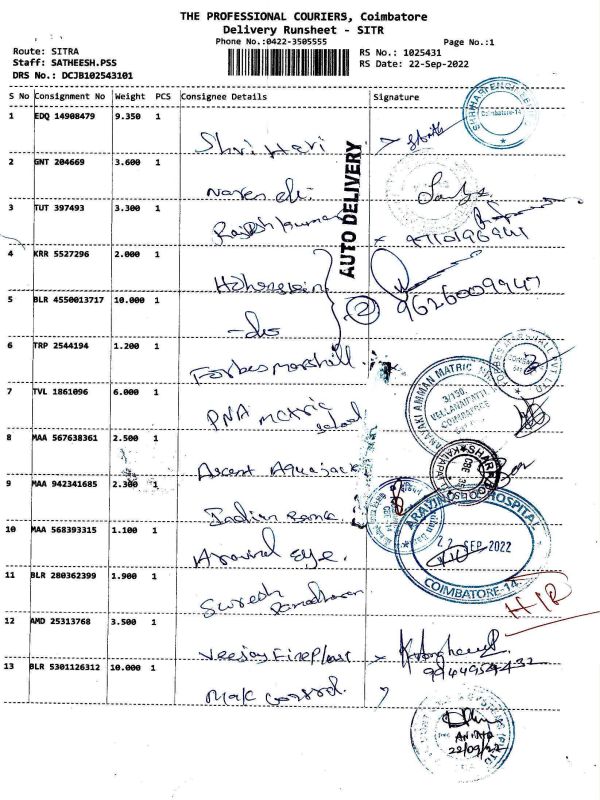 THE PROFESSIONAL COURIERS, Coimbatore
Delivery Runsheet - SITR
Phone No.:0422-3505555
Page No.:1
Route: SITRA
Staff: SATHEESH.PSS
DRS No.: DCJB102543101
RS No.: 1025431
RS Date: 22-Sep-2022
S No Consignment No Weight PCS Consignee Details Signature
1 EDQ 14908479 9.350 1
Shri Hari
2 GNT 204669 3.600 1
3 TUT 397493 3.300 1
Rajesh kumar
AUTO DELIVERY
4 KRR 5527296 2.000 1
9626009947
5 BLR 4550013717 10.000 1
2
6 TRP 2544194 1.200 1
Forbes Marshall.
7 TVL 1861096 6.000 1
PNA Matric school
8 MAA 567638361 2.500 1
Ascent Aquajack
9 MAA 942341685 2.300 1
Indian Bank
10 MAA 568393315 1.100 1
Aravind Eye.
ARAVIND EYE HOSPITAL
22 SEP 2022
COIMBATORE-14
11 BLR 280362399 1.900 1
Suresh
12 AMD 25313768 3.500 1
Veejay Fireplast
13 BLR 5301126312 10.000 1
Mak Control.
22/09/22